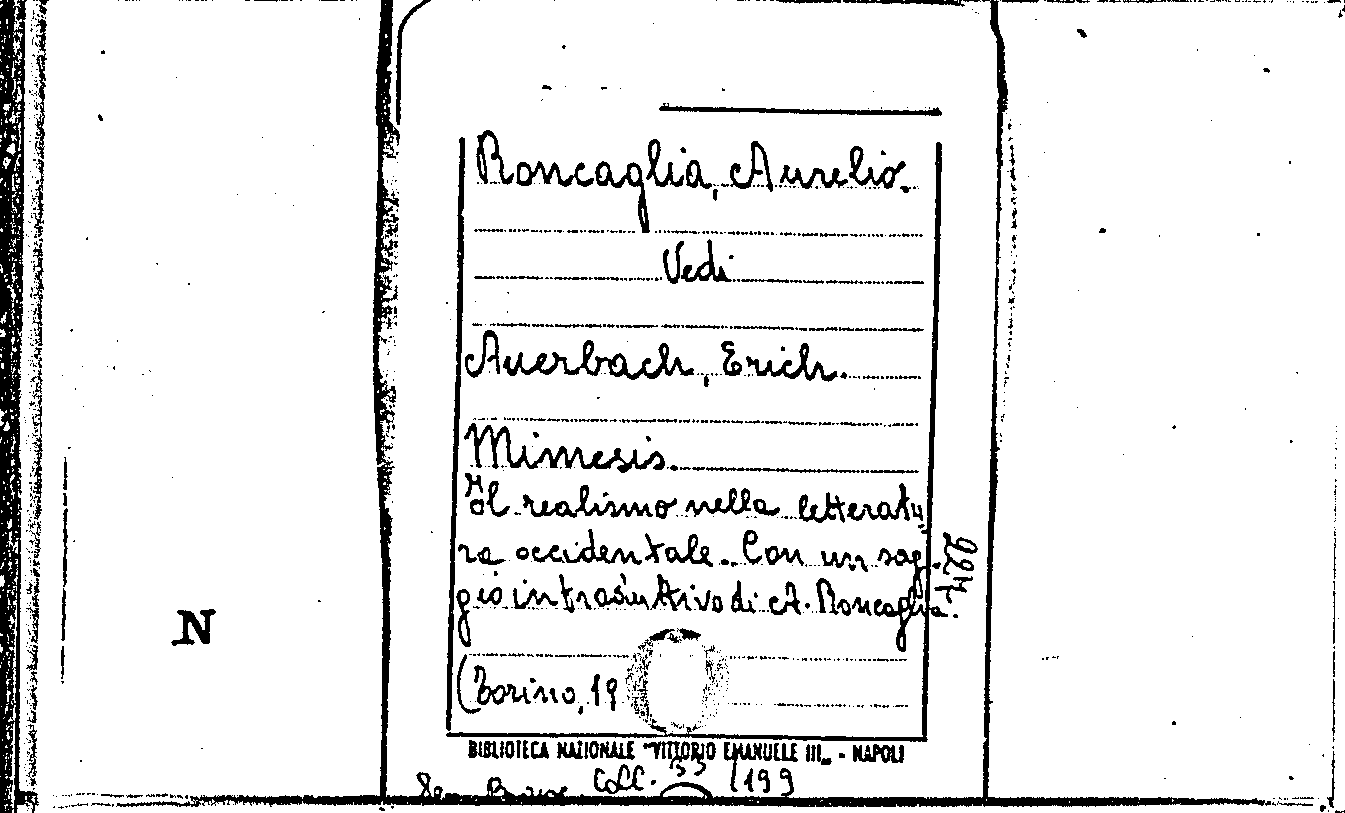 Roncaglia, Aurelio.
Vedi
Auerbach, Erich.
Mimesis.
Il realismo nella letteratu
ra occidentale. Con un sag-
gio introduttivo di A. Roncaglia.
(Torino, 19
BIBLIOTECA NAZIONALE "VITTORIO EMANUELE III„ - NAPOLI
Coll. /199
N